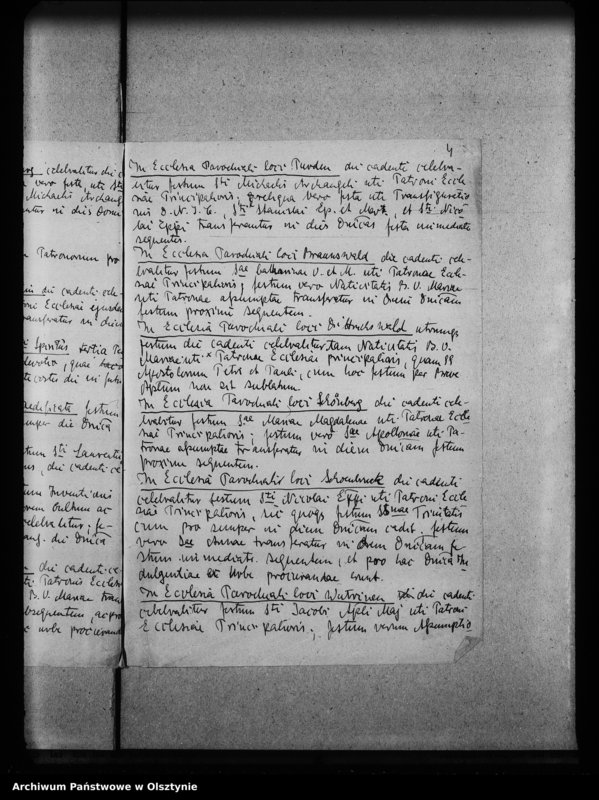 4
In Ecclesia Parochiali loci Purden die cadenti celebra-
bitur festum Sti Michaelis Archangeli uti Patroni Eccle-
siae Principalioris, reliqua vero festa uti Transfiguratio
nis D. N. J. C., Sti Stanislai Ep. et Mart, et Sti Nico
lai Eppi transferantur in dies Dnicas festa immediate
sequentes.
In Ecclesia Parochiali loci Braunswald die cadenti cele-
brabitur festum Sae Catharinae V. et M. uti Patronae Eccle-
siae Principalioris; festum vero Nativitatis B. V. Mariae
uti Patronae assumptae transferatur in Diem Dnicam
festum proxime sequentem.
In Ecclesia Parochiali loci Dittrichswald utrumqs
festum die cadenti celebrabitur tam Nativitatis B. V.
Mariae uti Patronae Ecclesiae principalioris, quam SS
Apostolorum Petri et Pauli, cum hoc festum per Breve
Aplicum non sit sublatum.
In Ecclesia Parochiali loci Schönberg die cadenti cele-
brabitur festum Sae Mariae Magdalenae uti Patronae Eccle
siae Principalioris; festum vero Sae Apolloniae uti Pa-
tronae assumptae transferatur in diem Dnicam festum
proxime sequentem.
In Ecclesia Parochiali loci Schoenbruck die cadenti
celebrabitur festum Sti Nicolai Eppi uti Patroni Eccle
siae Principalioris, sic quoqs festum SSmae Trinitatis
cum pro semper in diem Dnicam cadit, festum
vero Sae Annae transferatur in Diem Dnicam fe
stum immediate sequentem, et pro hac Dnica In
dulgentiae ex Urbe procurandae erunt.
In Ecclesia Parochiali loci Wutrinen die cadenti
celebrabitur festum Sti Jacobi Apli Maj uti Patroni
Ecclesiae Principalioris; festum verum Assumptio
celebrabitur die c
vero festa, uti Sti
Michaelis Archang
Patronorum pro
die cadenti cele-
Ecclesiae
transferatur in diem
Spiritus tertia
festum
semper die Dnica
Sti Laurentii
die cadenti ce-
Inventionis
celebrabitur; fe-
die Dnica
die cadenti ce-
Patronis Eccles
B. V. Mariae trans
Urbe procurand
Archiwum Państwowe w Olsztynie